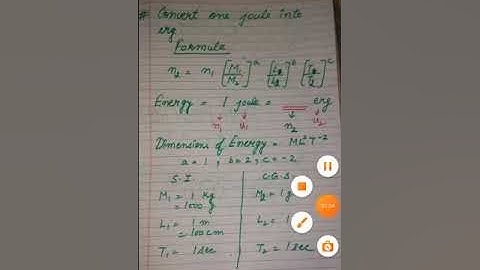 # Convert one joule into
erg.
Formula
n₂ = n₁ [M₁/M₂]^a [L₁/L₂]^b [T₁/T₂]^c
Energy = 1 joule = ___ erg
n₁ u₁ n₂ u₂
Dimensions of Energy = ML²T⁻²
a = 1, b = 2, c = -2
S.I C.G.S
M₁ = 1 kg M₂ = 1 g
= 1000 g
L₁ = 1 m L₂ = 1
= 100 cm
T₁ = 1 sec T₂ = 1 sec